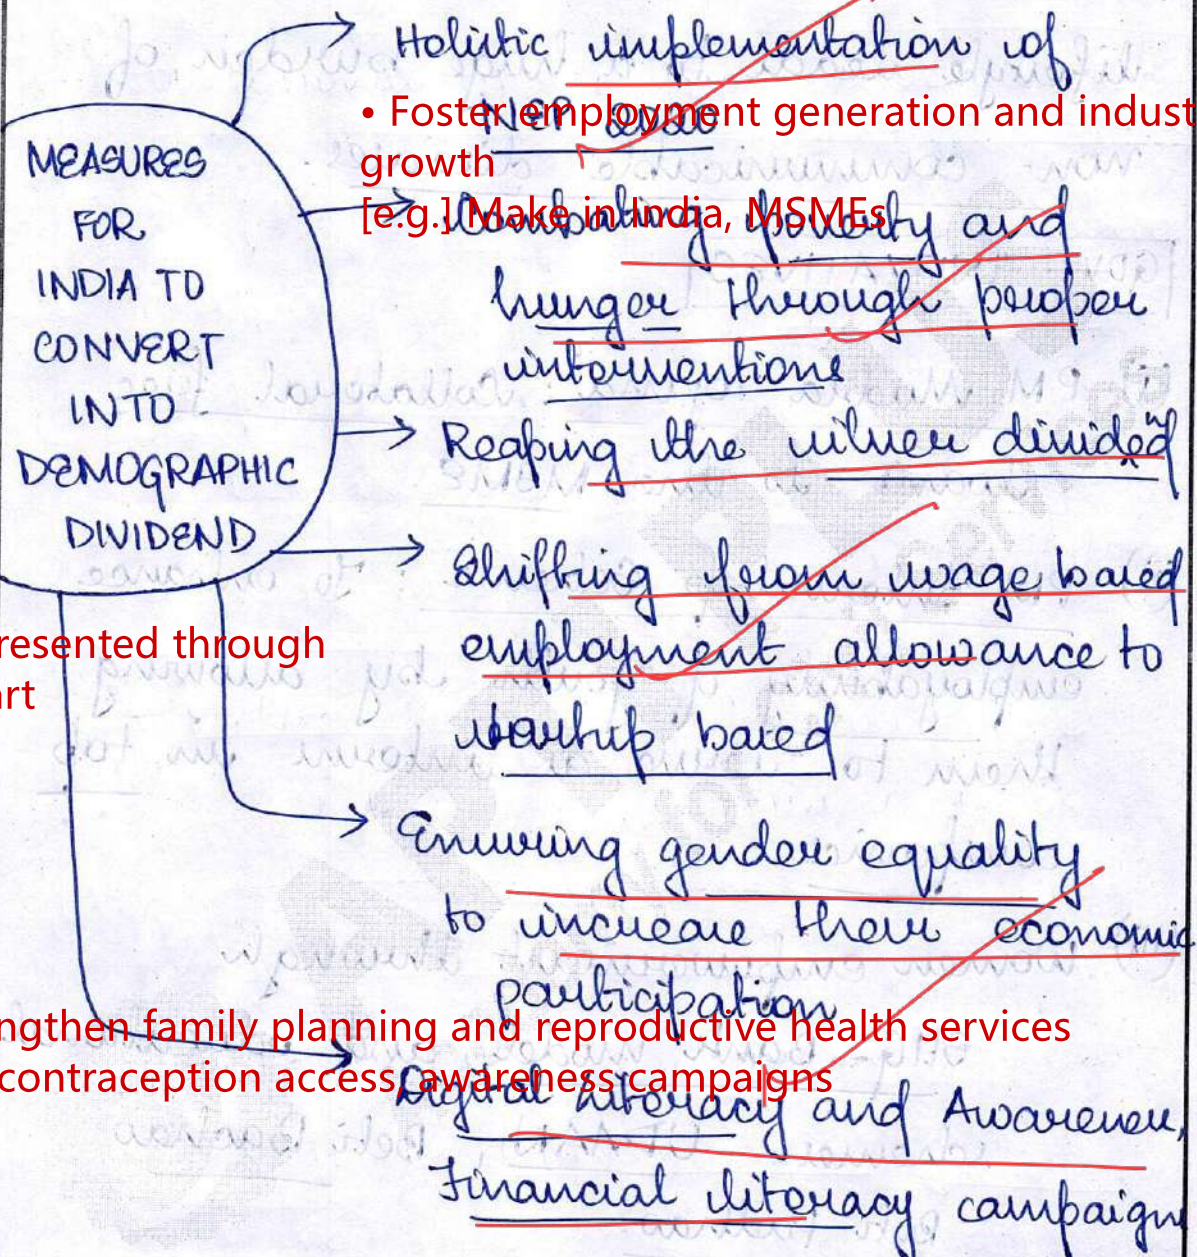 MEASURES
FOR
INDIA TO
CONVERT
INTO
DEMOGRAPHIC
DIVIDEND
Holistic implementation of
NEP 2020
• Foster employment generation and indust
growth
[e.g.] Make in India, MSMEs
Combating poverty and
hunger through proper
interventions
Reaping the silver divided
Shifting from wage based
employment allowance to
startup based
resented through
art
Ensuring gender equality
to increase their economic
participation
ngthen family planning and reproductive health services
contraception access, awareness campaigns
Digital literacy and Awareness,
Financial literacy campaign